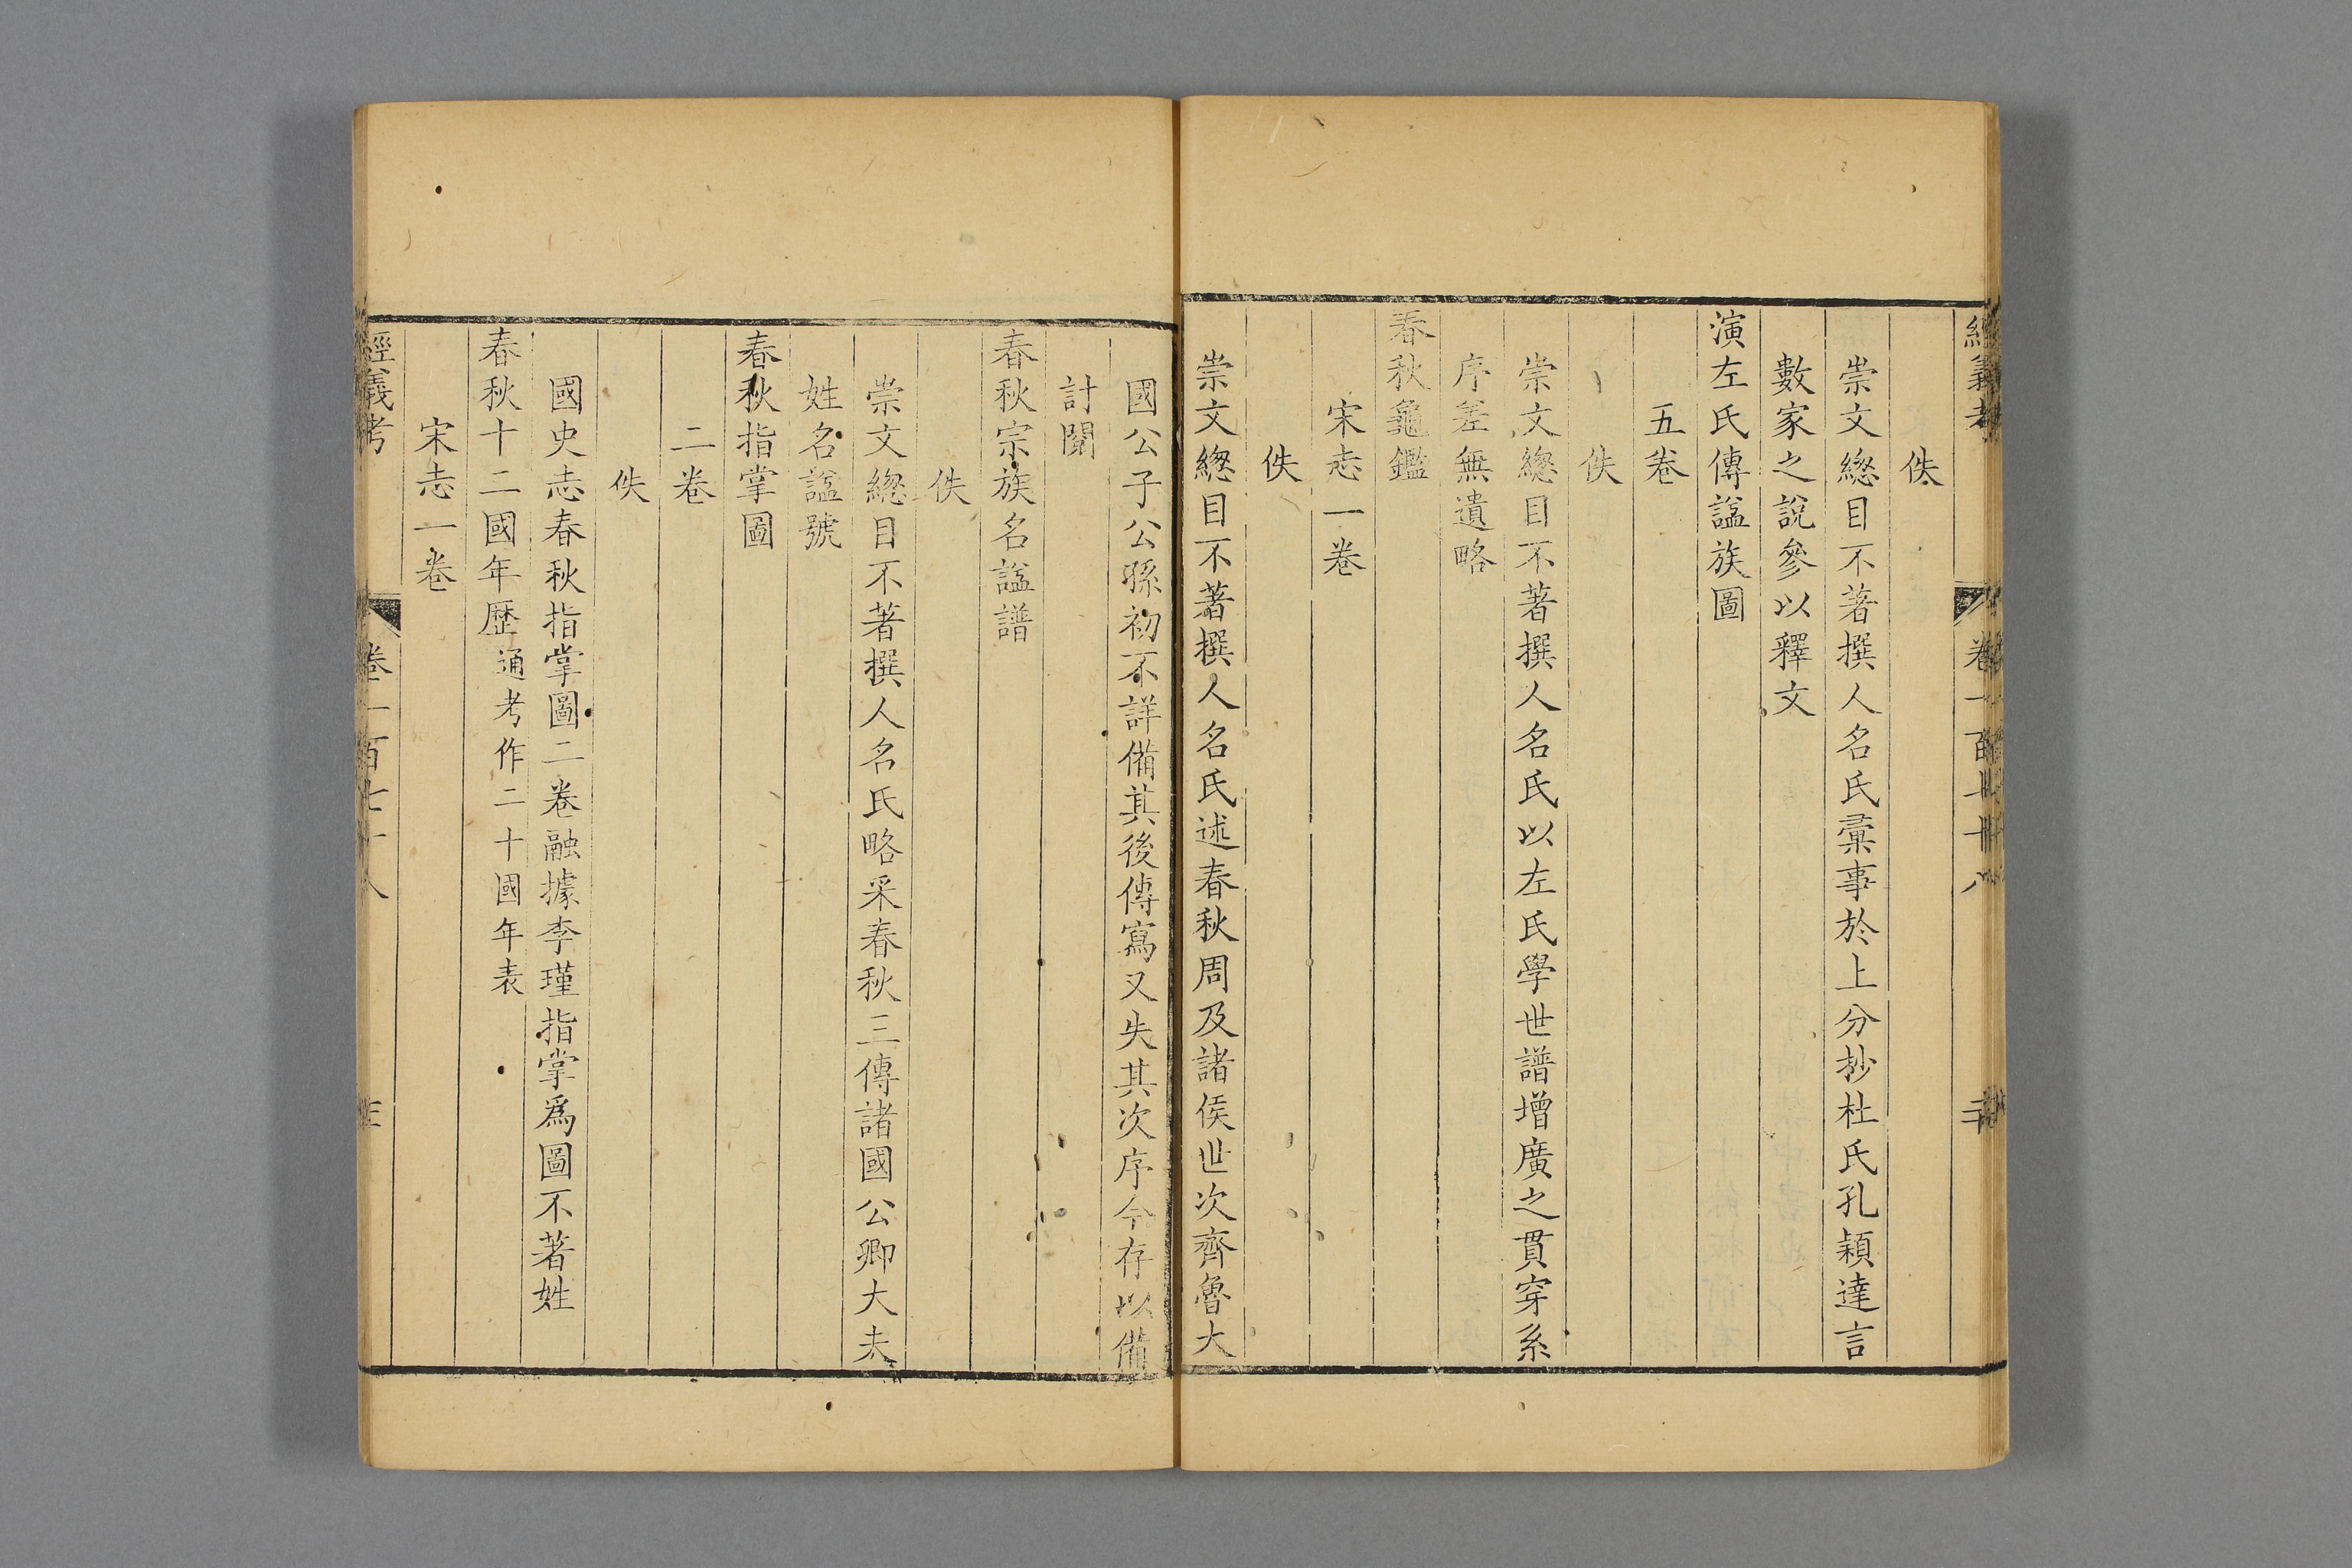 佚
崇文緫目不著撰人名氏彚事於上分抄杜氏孔穎達言
數家之說參以釋文
演左氏傳諡族圖
五卷
佚
崇文緫目不著撰人名氏以左氏學世譜增廣之貫穿系
序差無遺略
春秋龜鑑
宋志一卷
佚
崇文緫目不著撰人名氏述春秋周及諸侯世次齊魯大
國公子公孫初不詳備其後傳寫又失其次序今存以備
討閱
春秋宗族名諡譜
佚
崇文緫目不著撰人名氏略采春秋三傳諸國公卿大夫
姓名諡號
春秋指掌圖
二卷
佚
國史志春秋指掌圖二卷融據李瑾指掌爲圖不著姓
春秋十二國年歷通考作二十國年表
宋志一卷
經義考 卷一百七十八